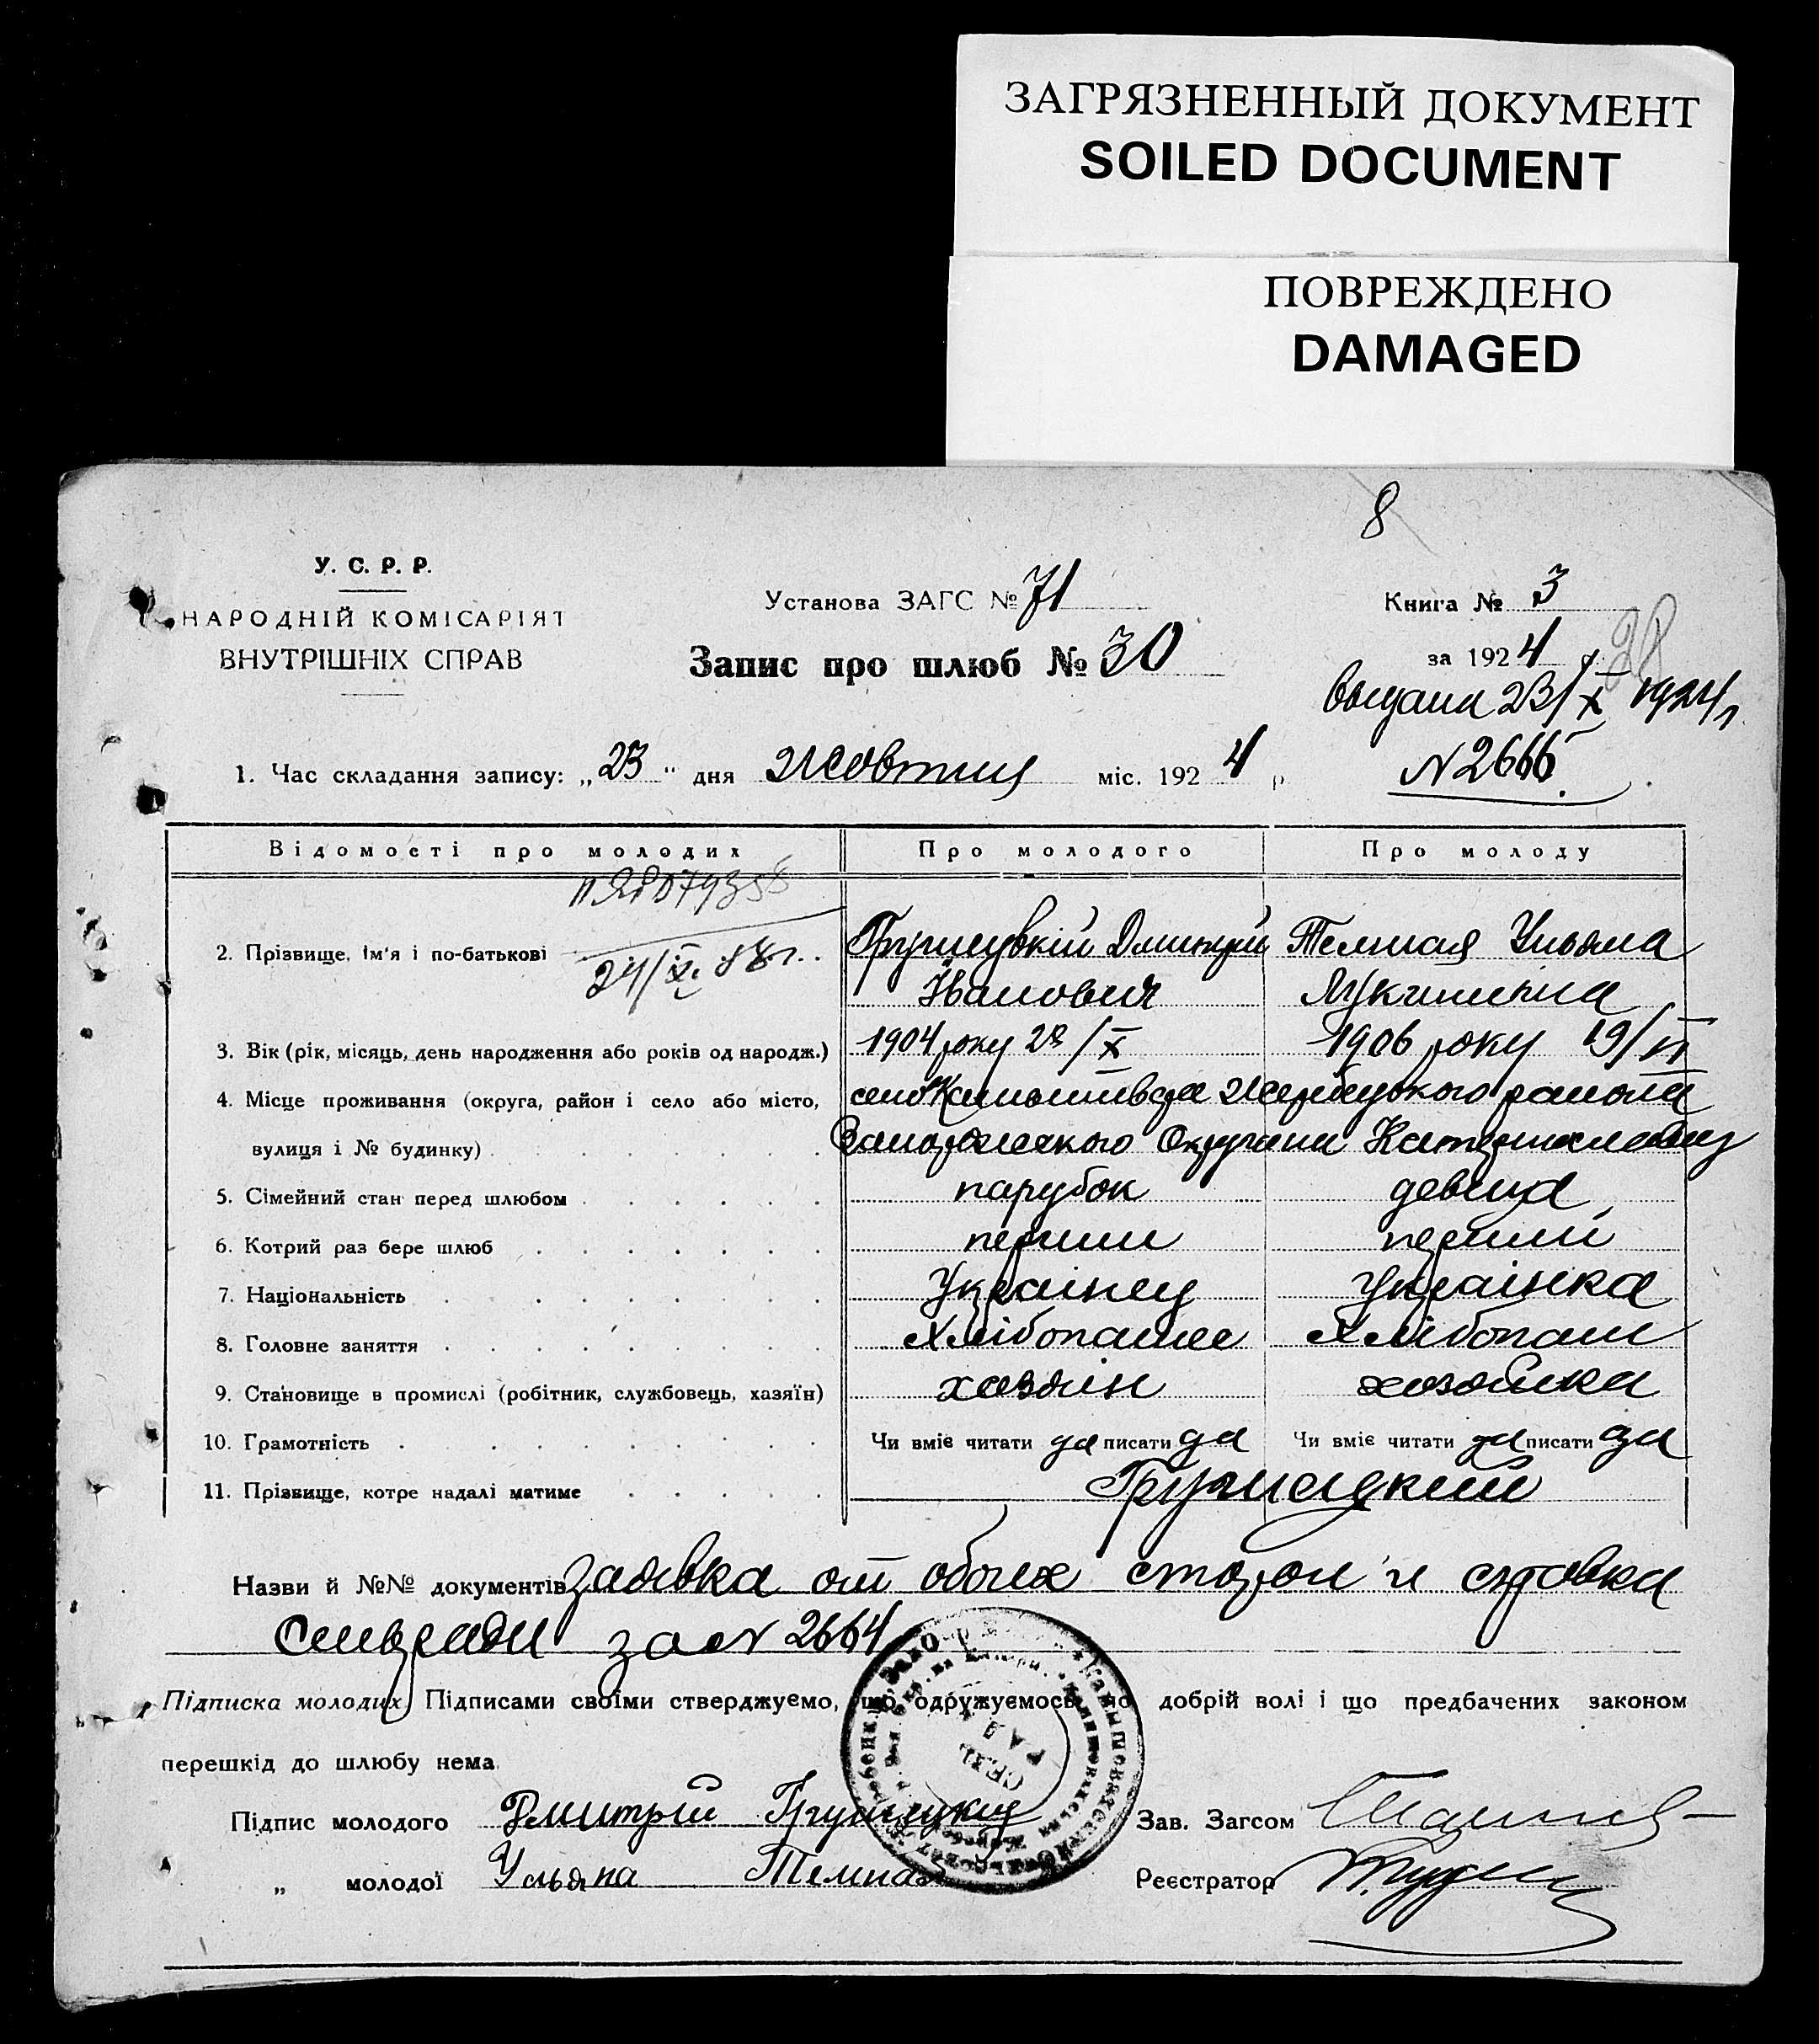 ЗАГРЯЗНЕННЫЙ ДОКУМЕНТ
SOILED DOCUMENT
ПОВРЕЖДЕНО
DAMAGED
8
У. С. Р. Р.
НАРОДНІЙ КОМІСАРІЯТ
ВНУТРІШНІХ СПРАВ
Установа ЗАГС № 71
Запис про шлюб № 30
Книга № 3
за 1924 р.
28
выдана 23/X 1924 г.
N 2666
1. Час складання запису: „23" дня Жовтня міс. 1924 р.
Відомості про молодих Про молодого Про молоду
24/X.
2. Прізвище, ім'я і по-батькові Грушецькій Дмитрій Темная Ульяна
Иванович Лукинична
3. Вік (рік, місяць, день народження або років од народж.) 1904 року 28/X 1906 року 19/VI
4. Місце проживання (округа, район і село або місто, село Жеребецького района
вулиця і № будинку) Запорожского Округи
5. Сімейний стан перед шлюбом парубок девица
6. Котрий раз бере шлюб перший перший
7. Національність Українец Українка
8. Головне заняття Хлібопашес Хлібопаш
9. Становище в промислі (робітник, службовець, хазяїн) хозяін хозяйка
10. Грамотність Чи вміє читати да писати да Чи вміє читати да писати да
11. Прізвище, котре надалі матиме Грушецкий
Назви й №№ документів заявка от обоих сторон и справка
Сільради за N 2664
Підписка молодих. Підписами своїми стверджуємо, що одружуємось по добрій волі і що предбачених законом
перешкід до шлюбу нема.
СЕЛЬ
РАДА
Підпис молодого Дмитрій Грушецкий Зав. Загсом
„ молодої Ульяна Темная Реєстратор